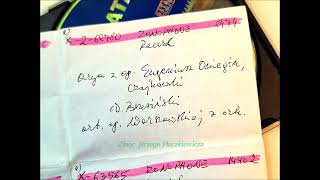 a)
X-2-62760 ZONOPHONE
Record
Arya z op. Eugeniusz Oniegin,
Czajkowski
D. Brzesiński
art. op. Warszawskiej z ork.
Zbiór Jerzego Płaczkiewicza
X-63565 ZONOPHONE